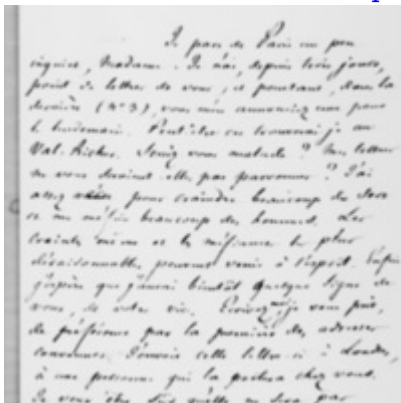 Je pars de Paris un peu
inquiet, Madame. Je n'ai, depuis trois jours,
point de lettre de vous, et pourtant, dans la
dernière (n°3), vous m'en annonciez une pour
le lendemain. Peut-être en trouverai-je au
Val-Richer. Seriez vous malade ? Mes lettres
ne vous seraient-elles pas parvenues ? J'ai
assez pour craindre beaucoup des
et me méfie beaucoup des hommes. Les
craintes même et les méfiances les plus
déraisonnables peuvent venir à l'esprit. Enfin
j'espère que j'aurai bientôt quelque ligne de
vous, de votre vie. Ecrivez moi, je vous prie,
de préférence par la première des adresses
convenues. J'envoie cette lettre-ci à Londres,
à une personne qui la portera chez vous.
Je veux être sûr qu'elle ne sera pas